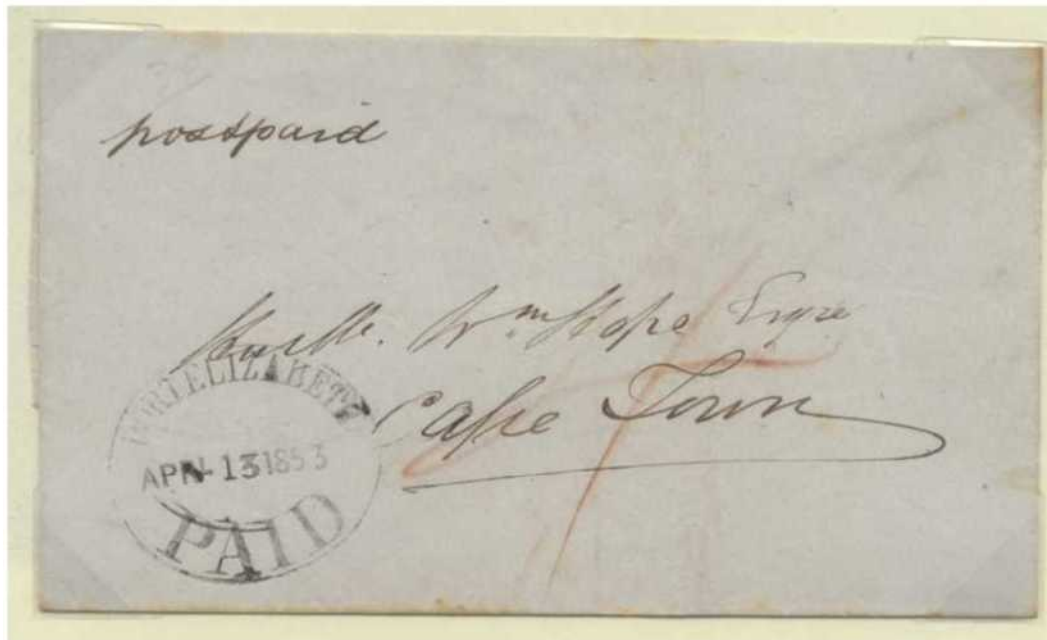 postpaid
Wm Hope Esqre
Cape Town
PORT ELIZABETH
APR 13 1853
PAID
4